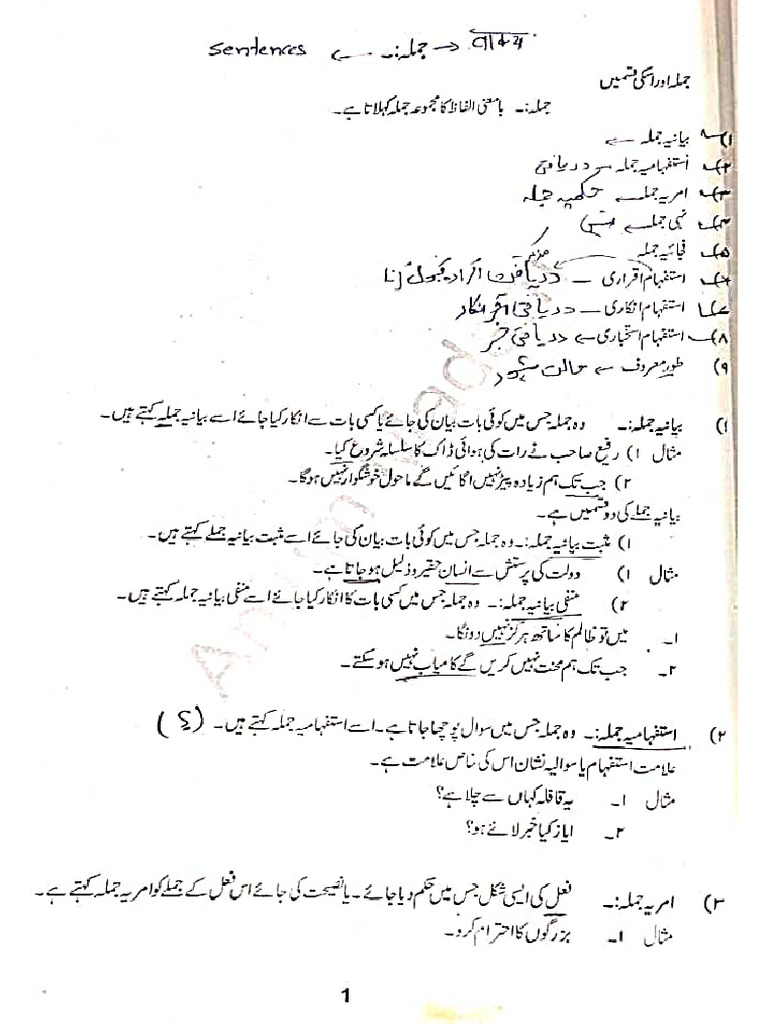 Sentences ← جملہ:۔ → वाक्य
جملہ اور اسکی قسمیں
جملہ:۔ بامعنی الفاظ کا مجموعہ جملہ کہلاتا ہے۔
۱) بیانیہ جملہ ←
۲) استفہامیہ جملہ ← دریافتی
۳) امریہ جملہ ← حکمیہ جملہ
۴) نہی جملہ ←
۵) فجائیہ جملہ
۶) استفہام اقراری ← دریافت
۷) استفہام انکاری ← دریافتی
۸) استفہام استخباری ← دریافتی خبر
۹) طور معروف ← حالت
۱) بیانیہ جملہ:۔ وہ جملہ جس میں کوئی بات بیان کی جائے یا کسی بات سے انکار کیا جائے اسے بیانیہ جملہ کہتے ہیں۔
مثال ۱) رفیع صاحب نے رات کی ہوائی ڈاک کا سلسلہ شروع کیا۔
۲) جب تک ہم زیادہ پیڑ نہیں اگائیں گے ماحول خوشگوار نہیں ہوگا۔
بیانیہ جملہ کی دو قسمیں ہے۔
۱) مثبت بیانیہ جملہ:۔ وہ جملہ جس میں کوئی بات بیان کی جائے اسے مثبت بیانیہ جملے کہتے ہیں۔
مثال ۱) دولت کی پرستش سے انسان حقیر و ذلیل ہو جاتا ہے۔
۲) منفی بیانیہ جملہ:۔ وہ جملہ جس میں کسی بات کا انکار کیا جائے اسے منفی بیانیہ جملہ کہتے ہیں۔
۱۔ میں تو ظالم کا ساتھ ہرگز نہیں دونگا۔
۲۔ جب تک ہم محنت نہیں کریں گے کامیاب نہیں ہو سکتے۔
۲) استفہامیہ جملہ:۔ وہ جملہ جس میں سوال پوچھا جاتا ہے۔ اسے استفہامیہ جملہ کہتے ہیں۔ (؟)
علامت استفہام یا سوالیہ نشان اس کی خاص علامت ہے۔
مثال ۱۔ یہ قافلہ کہاں سے چلا ہے؟
۲۔ ایاز کیا خبر لائے ہو؟
۳) امریہ جملہ:۔ فعل کی ایسی شکل جس میں حکم دیا جائے۔ یا نصیحت کی جائے اس فعل کے جملے کو امریہ جملہ کہتے ہے۔
مثال ۱۔ بزرگوں کا احترام کرو۔
1